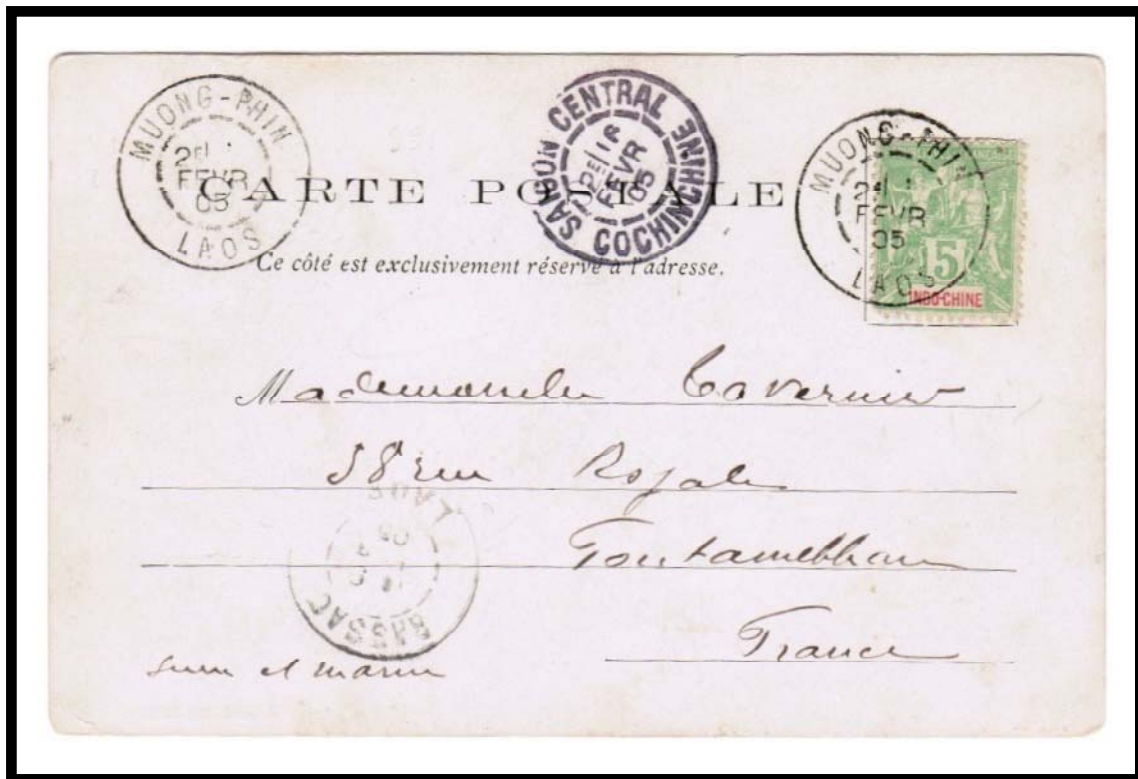 MUONG-PHIN
2E 1
FEVR
05
LAOS
SAIGON CENTRAL
2E 16
FEVR
05
COCHINCHINE
MUONG-PHIN
2E 1
FEVR
05
LAOS
5
INDO-CHINE
CARTE POSTALE
Ce côté est exclusivement réservé à l'adresse.
Mademoiselle Tavernier
58 rue Royale
Fontainebleau
France
Seine et Marne
LAOS
05
BASSAC